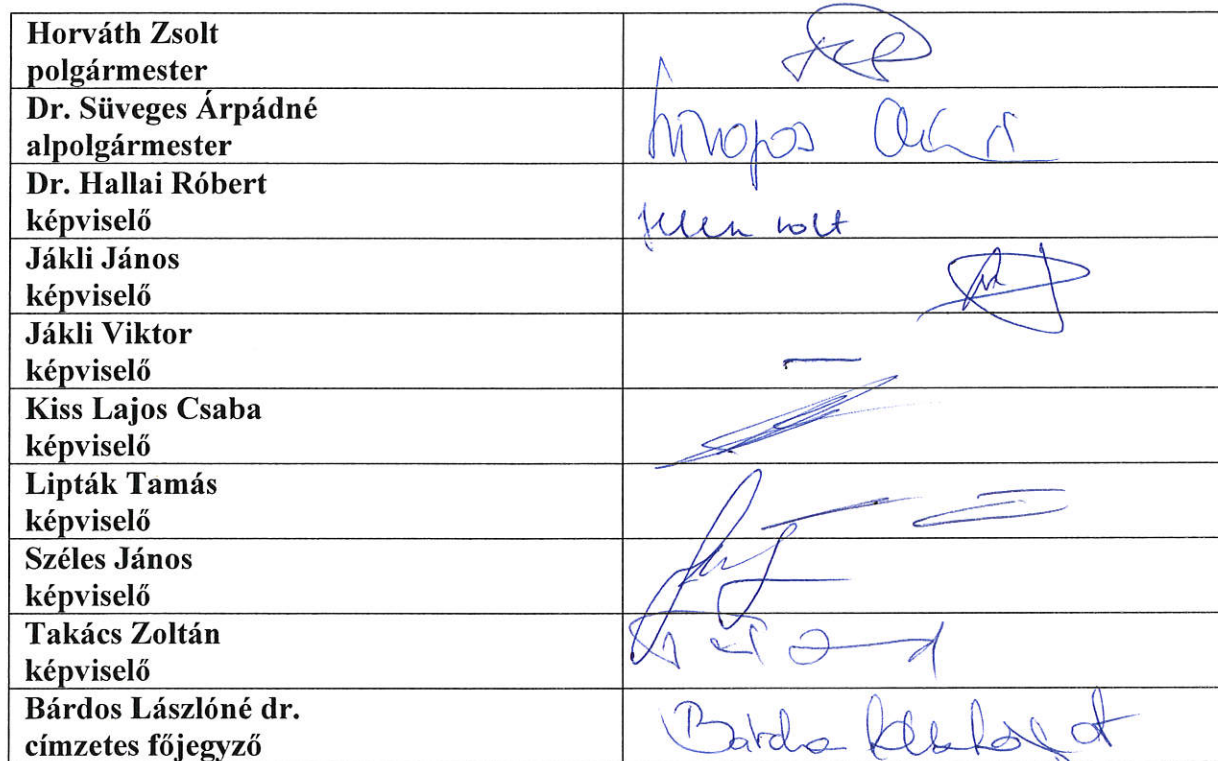 Horváth Zsolt
polgármester
Dr. Süveges Árpádné
alpolgármester
Dr. Hallai Róbert
képviselő
jelen volt
Jákli János
képviselő
Jákli Viktor
képviselő
–
Kiss Lajos Csaba
képviselő
Lipták Tamás
képviselő
Széles János
képviselő
Takács Zoltán
képviselő
Bárdos Lászlóné dr.
címzetes főjegyző